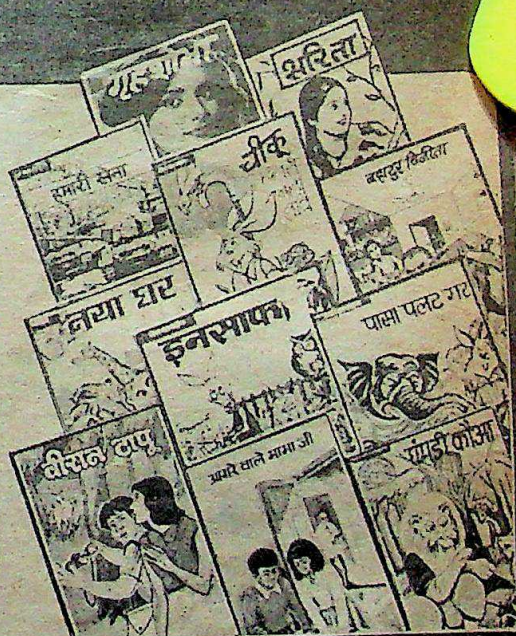 गृहशोभा
सरिता
हमारी सेना
चीकू
बहादुर विजेता
नया घर
इनसाफ
पासा पलट गया
वीरान टापू
आगरे वाले मामा जी
घमंडी कौआ